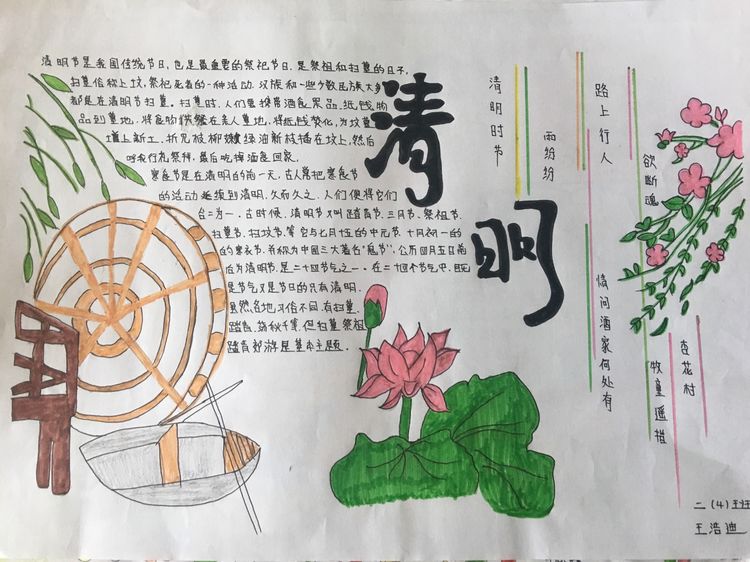 清明节是我国传统节日，也是最重要的祭祀节日，是祭祖和扫墓的日子。
扫墓俗称上坟，祭祀死者的一种活动。汉族和一些少数民族大多
都是在清明节扫墓。扫墓时，人们要携带酒食果品，纸钱物
品到墓地，将食物供祭在亲人墓地，将纸钱焚化，为坟墓
培上新土，折几枝柳嫩绿油新枝插在坟上，然后
叩头行礼祭拜，最后吃掉酒食回家。
寒食节是在清明的前一天，古人常把寒食节
的活动延续到清明，久而久之，人们便将它们
合二为一，古时候，清明节又叫踏青节，三月节，祭祖节，
扫墓节，扫坟节，等它与七月十五的中元节 十月初一的
的寒衣节，并称为中国三大著名"鬼节"，公历四月五日前
后为清明节，是二十四节气之一。在二十四个节气中，既
是节气又是节日的只有清明。
虽然各地习俗不同，有扫墓，
踏青，荡秋千等，但扫墓祭祖
踏青郊游是基本主题。
清明
清明时节
雨纷纷
路上行人
欲断魂
借问酒家何处有
牧童遥指
杏花村
二(4)班
王浩迪